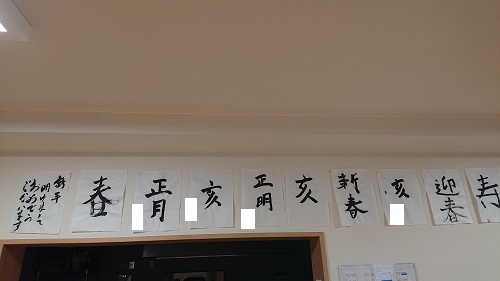 新年
明けまして
おめでとう
ございます
春
正月
亥
正明
亥
新春
亥
迎春
寿